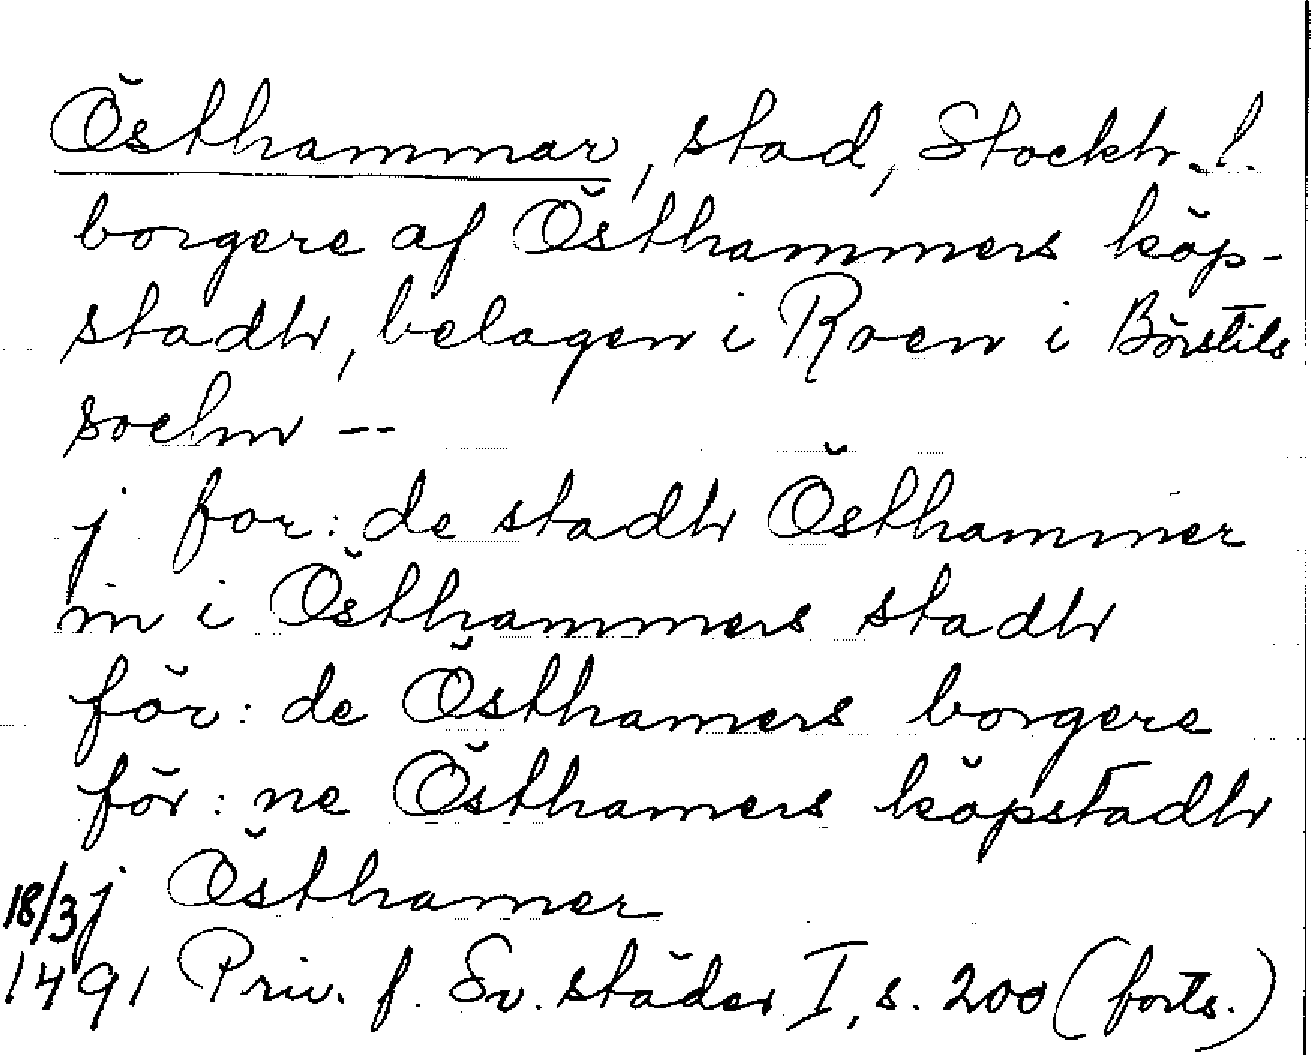 Östhammar, stad, Stockh. l.
borgere af Östhammers köp-
stadh, belagen i Roen i Börstils
sochn --
j for: de stadh Östhammer
in i Östhammers stadh
för: de Östhamers borgere
för: ne Östhamers köpstadh
18/3 j Östhamer
1491 Priv. f. Sv. städer I, s. 200 (forts.)